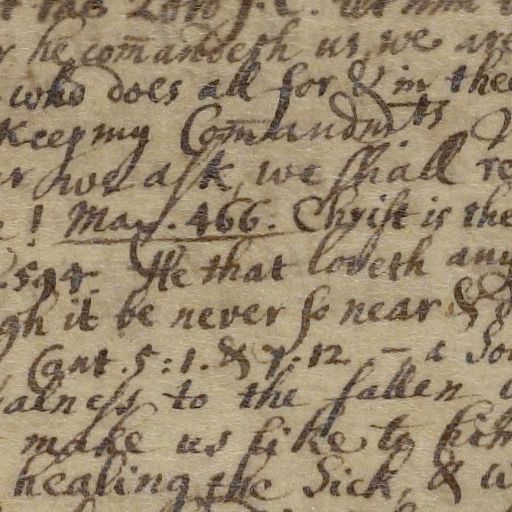 the Lord J. C.
he com̄andeth us, we are
who does all for & in the
Keep my Com̄andm.ts
we ask, we shall re
! Max. 466. Christ is the
.594. He that loveth any
gh it be never so near &
Cant. 5:1. & 7:12 – a So
alness to the fallen
make us like to him
healing the Sick, & w